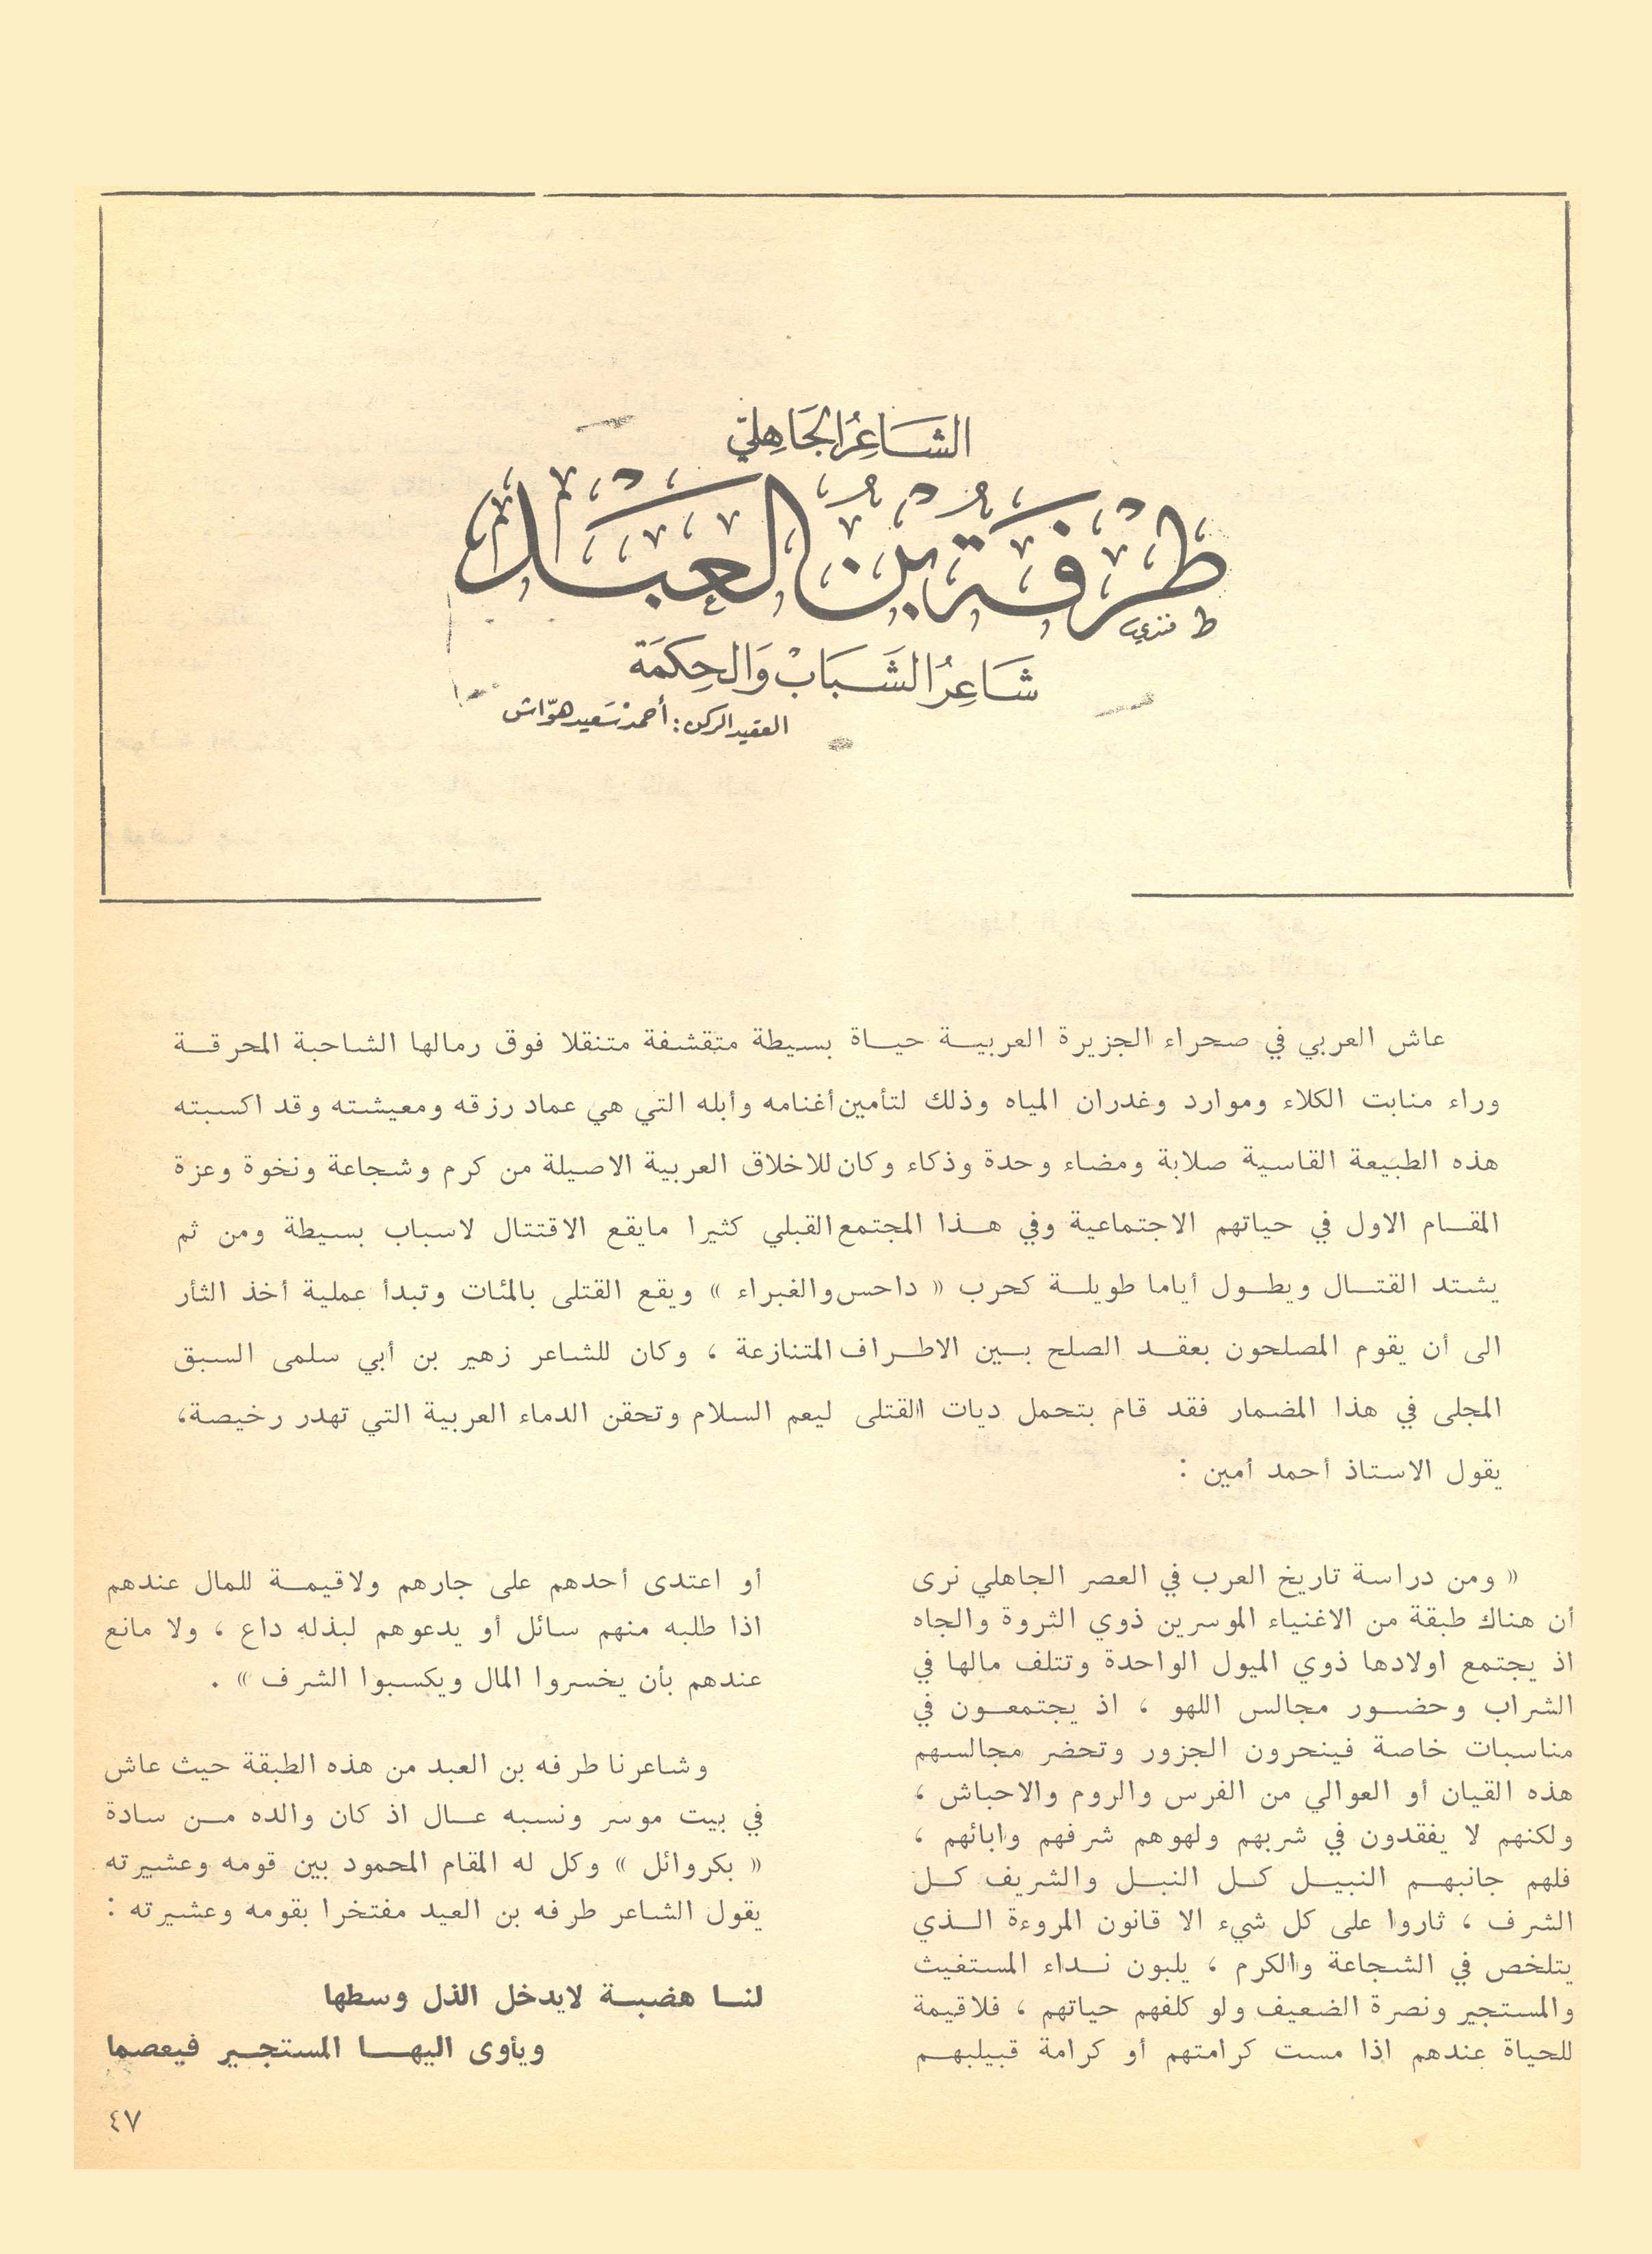 الشَاعِرُ الجَاهِليّ
طَرَفَةُ بْنُ العَبْدِ
شَاعِرُ الشَبَابْ وَالحِكمَة
العقيد الركن : أحمد سَعيد هوّاش
عاش العربي في صحراء الجزيرة العربيـة حيـاة بسيطة متقشفة متنقلا فوق رمالها الشاحبة المحرقـة
وراء منابت الكلاء وموارد وغدران المياه وذلك لتأمين أغنامه وأبله التي هي عماد رزقه ومعيشته وقد اكسبته
هذه الطبيعة القاسية صلابة ومضاء وحدة وذكاء وكان للاخلاق العربية الاصيلة من كرم وشجاعة ونخوة وعزة
المقـام الاول في حياتهم الاجتماعية وفي هـذا المجتمع القبلي كثيرا مايقع الاقتتال لاسباب بسيطة ومن ثم
يشتد القتـال ويطـول أياما طويلـة كحرب « داحس والغبراء » ويقع القتلى بالمئات وتبدأ عملية أخذ الثأر
الى أن يقوم المصلحون بعقـد الصلح بـين الاطـراف المتنازعة ، وكان للشاعر زهير بن أبي سلمى السبق
المجلى في هذا المضمار فقد قام بتحمل ديات القتلى ليعم السلام وتحقن الدماء العربية التي تهدر رخيصة،
يقول الاستاذ أحمد أمين :
« ومن دراسة تاريخ العرب في العصر الجاهلي نرى
أن هناك طبقة من الاغنياء الموسرين ذوي الثروة والجاه
اذ يجتمع اولادها ذوي الميول الواحدة وتتلف مالها في
الشراب وحضـور مجالس اللهو ، اذ يجتمعـون في
مناسبات خاصة فينحرون الجزور وتحضر مجالسهم
هذه القيان أو العوالي من الفرس والروم والاحباش ،
ولكنهم لا يفقدون في شربهم ولهوهم شرفهم وابائهم ،
فلهم جانبهـم النبيـل كـل النبـل والشريف كـل
الشرف ، ثاروا على كل شيء الا قانون المروءة الـذي
يتلخص في الشجاعة والكرم ، يلبون نـداء المستغيث
والمستجير ونصرة الضعيف ولو كلفهم حياتهم ، فلاقيمة
للحياة عندهم اذا مست كرامتهم أو كرامة قبيلبهـم
أو اعتدى أحدهم على جارهم ولاقيمـة للمال عندهم
اذا طلبه منهم سائل أو يدعوهم لبذله داع ، ولا مانع
عندهم بأن يخسروا المال ويكسبوا الشرف » .
وشاعرنا طرفه بن العبد من هذه الطبقة حيث عاش
في بيت موسر ونسبه عـال اذ كان والده مـن سادة
« بكر وائل » وكل له المقام المحمود بين قومه وعشيرته
يقول الشاعر طرفه بن العيد مفتخرا بقومه وعشيرته :
لنـا هضبـة لايدخل الذل وسطها
ويأوى اليهـا المستجـير فيعصما
٤٧